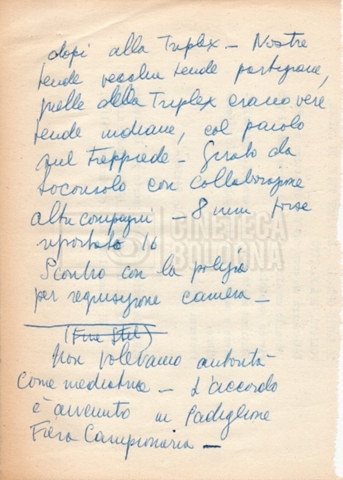 dopi alla Triplex – Nostre
tende vecchie tende partigiane,
quelle della Triplex erano vere
tende indiane, col paiolo
sul treppiede – Girato da
con collaborazione
altri compagni – 8 mm forse
riportato 16
Scontro con la polizia
per requisizione camera –
(Fine Stil)
Non volevamo autorità
come mediatrice – L'accordo
è avvenuto in Padiglione
Fiera Campionaria –
CINETECA
BOLOGNA